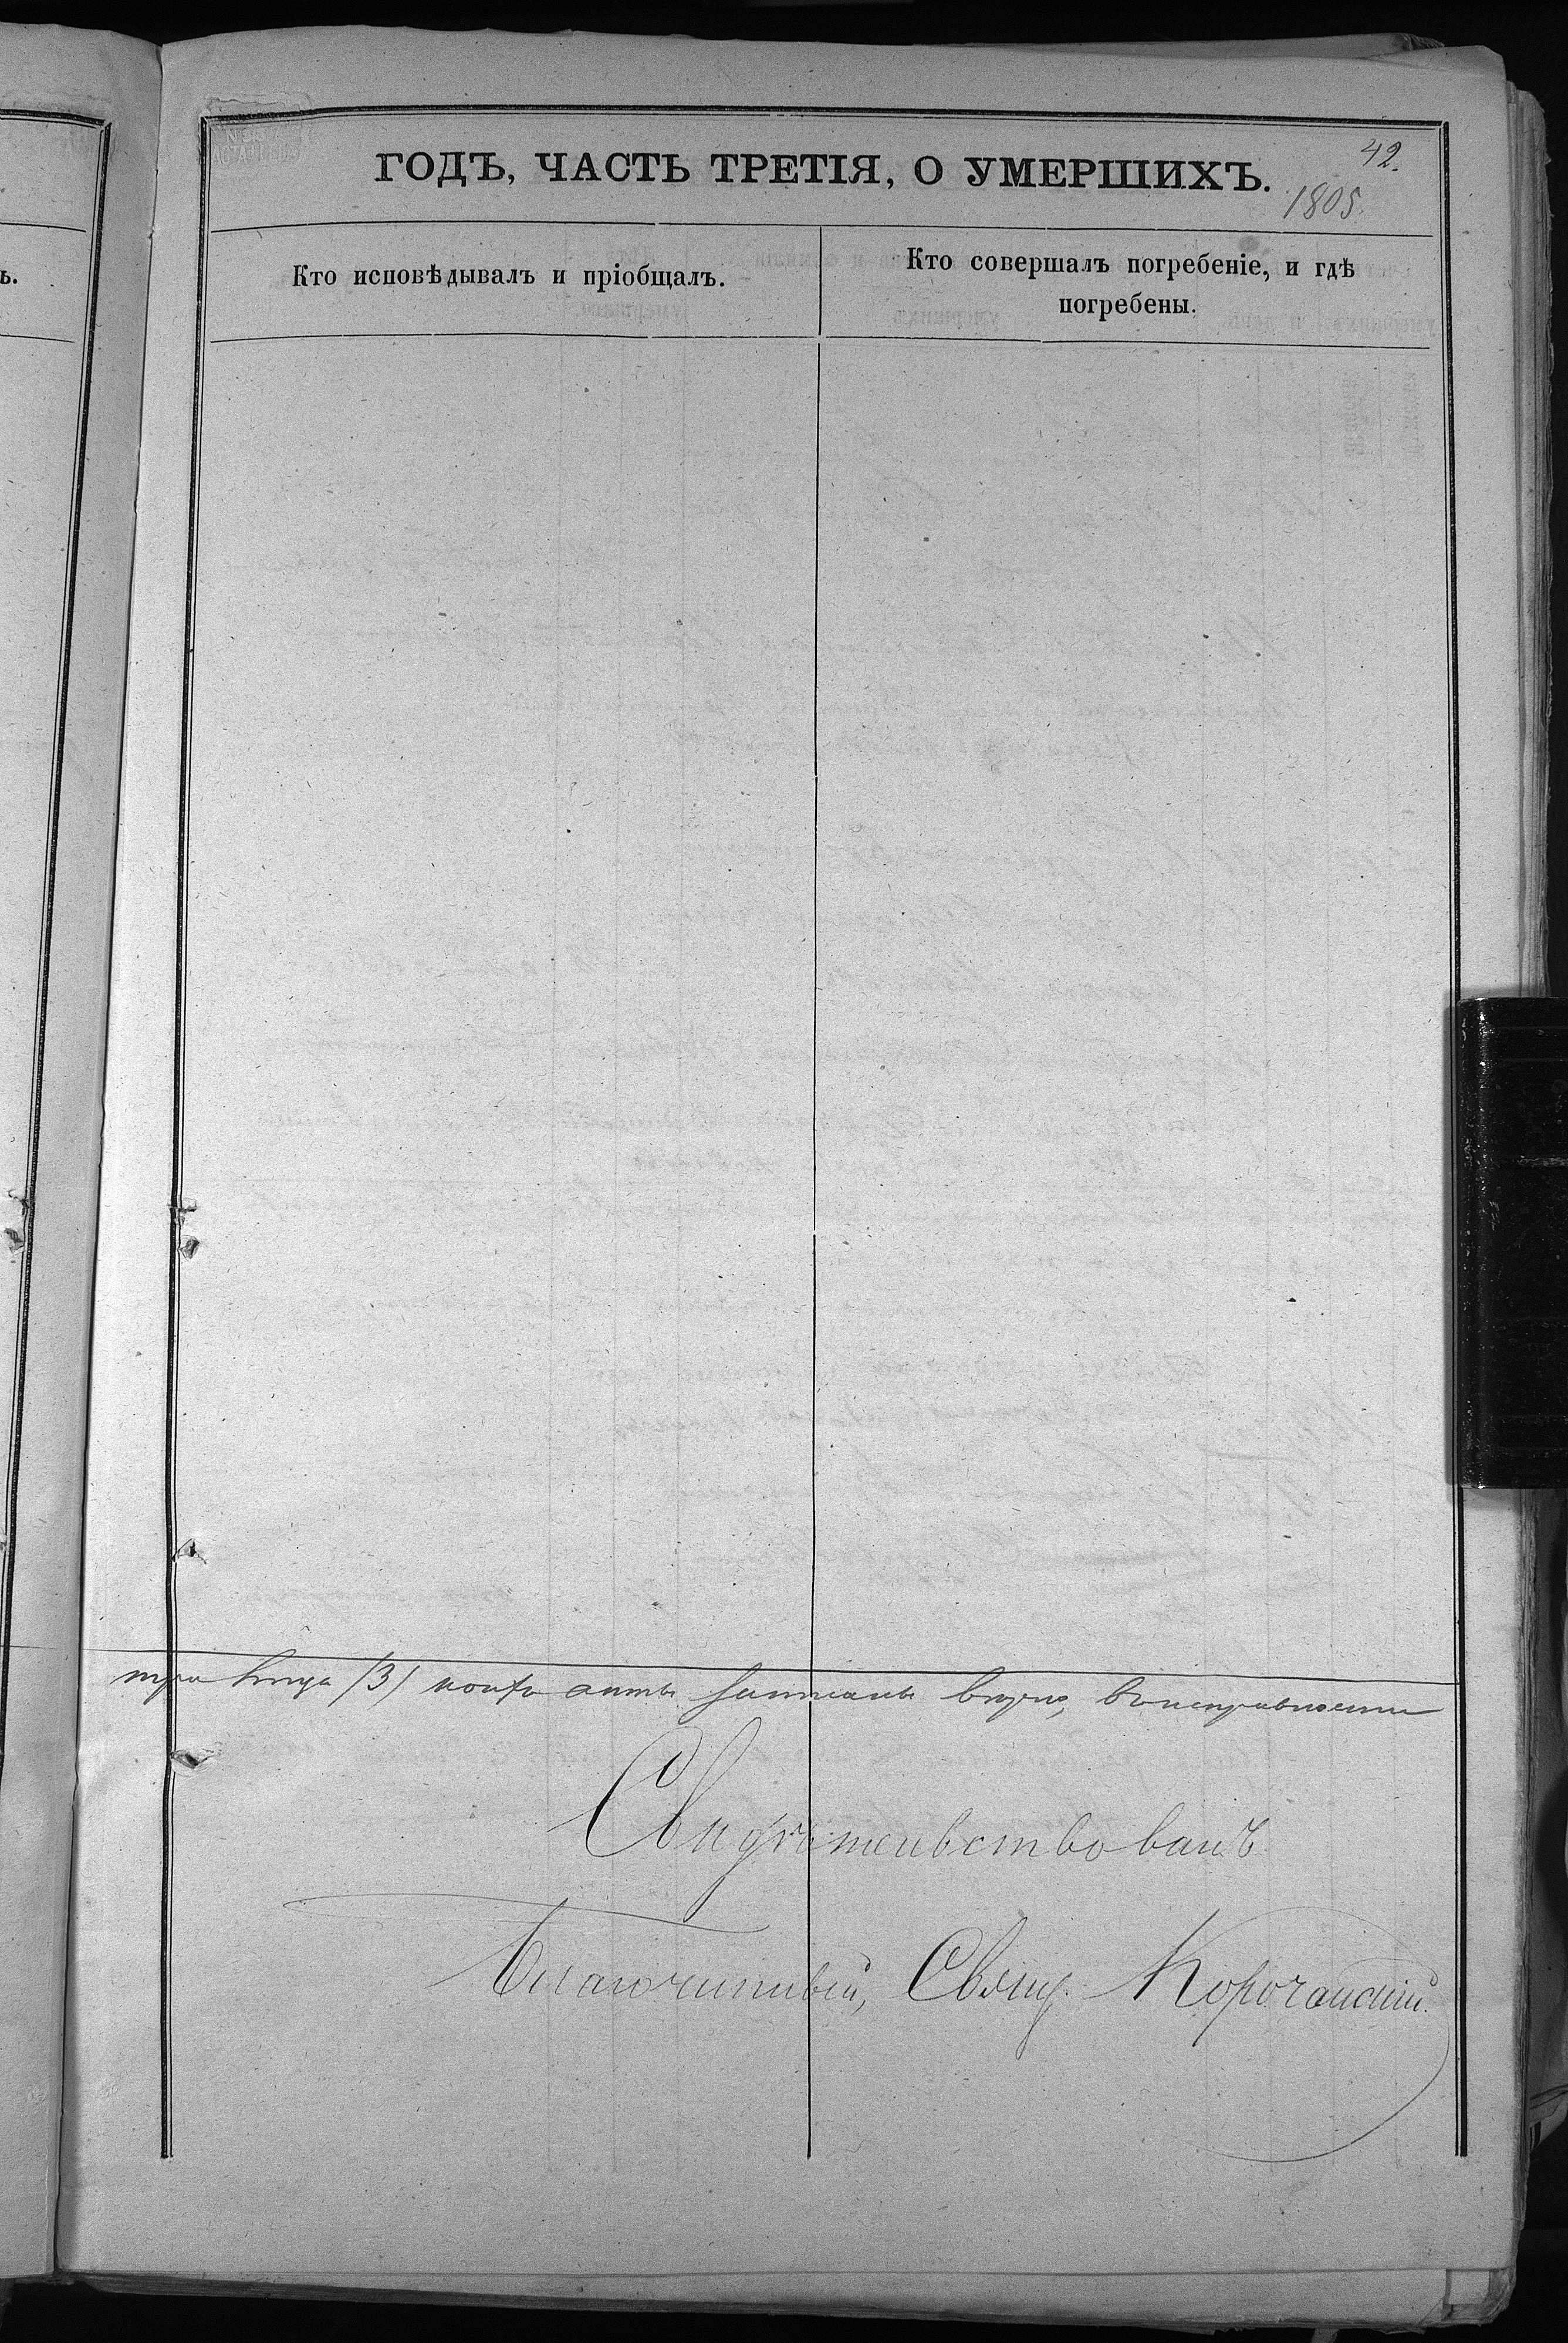 42.
ГОДЪ, ЧАСТЬ ТРЕТІЯ, О УМЕРШИХЪ.
1805.
Кто исповѣдывалъ и пріобщалъ.
Кто совершалъ погребеніе, и гдѣ
погребены.
ъ.
три лица /3/ коихъ акты записаны вѣрно, въ исправности
Свидѣтельствовалъ
Благочинный, Свящ. Корочанскій.